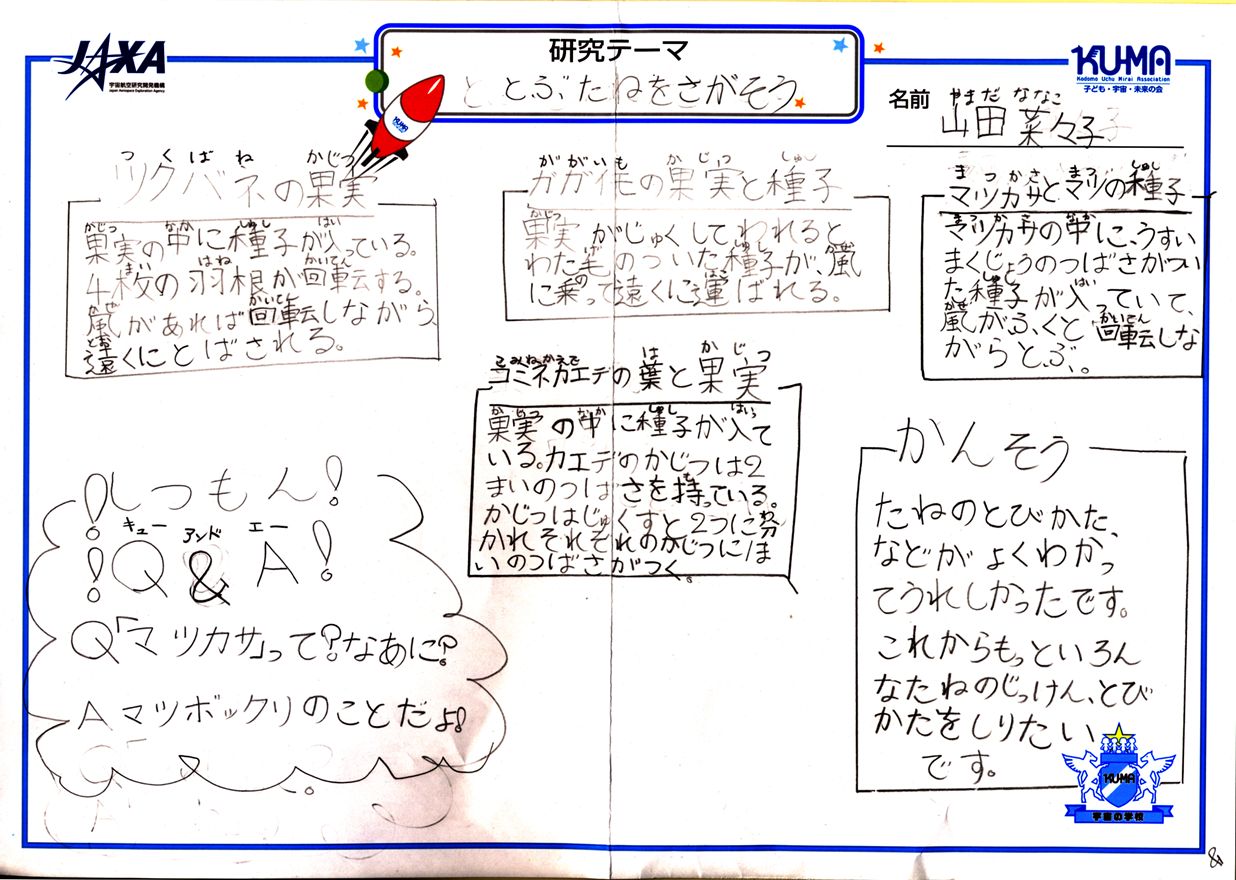 JAXA
宇宙航空研究開発機構
Japan Aerospace Exploration Agency
研究テーマ
とぶたねをさがそう
KUMA
KU-MA
Kodomo Uchu Mirai Association
子ども・宇宙・未来の会
名前
やまだ ななこ
山田 菜々子
つくばね かじつ
ツクバネの果実
かじつ なか しゅし はい
果実の中に種子が入っている。
まい はね かいてん
4枚の羽根が回転する。
かぜ かいてん
風があれば回転しながら、
とお
遠くにとばされる。
ががいも かじつ しゅし
ガガイモの果実と種子
かじつ
果実がじゅくしてわれると
げ しゅし かぜ
わた毛のついた種子が、風
の とお はこ
に乗って遠くに運ばれる。
まつかさ まつ しゅし
マツカサとマツの種子
まつかさ なか
マツカサの中に、うすい
まくじょうのつばさがつい
しゅし はい
た種子が入っていて、
かぜ かいてん
風がふくと回転しな
がらとぶ。
こみねかえで は かじつ
コミネカエデの葉と果実
かじつ なか しゅし はいっ
果実の中に種子が入て
いる。カエデのかじつは2
も
まいのつばさを持っている。
わ
かじつはじゅくすと2つに分
かれそれぞれのかじつに1ま
いのつばさがつく。
かんそう
たねのとびかた、
などがよくわかっ
てうれしかったです。
これからもっといろん
なたねのじっけん、とび
かたをしりたい
です。
!しつもん!
キュー アンド エー
!Q&A!
Q「マツカサ」って?なあに?
A マツボックリのことだよ!
KUMA
宇宙の学校
&